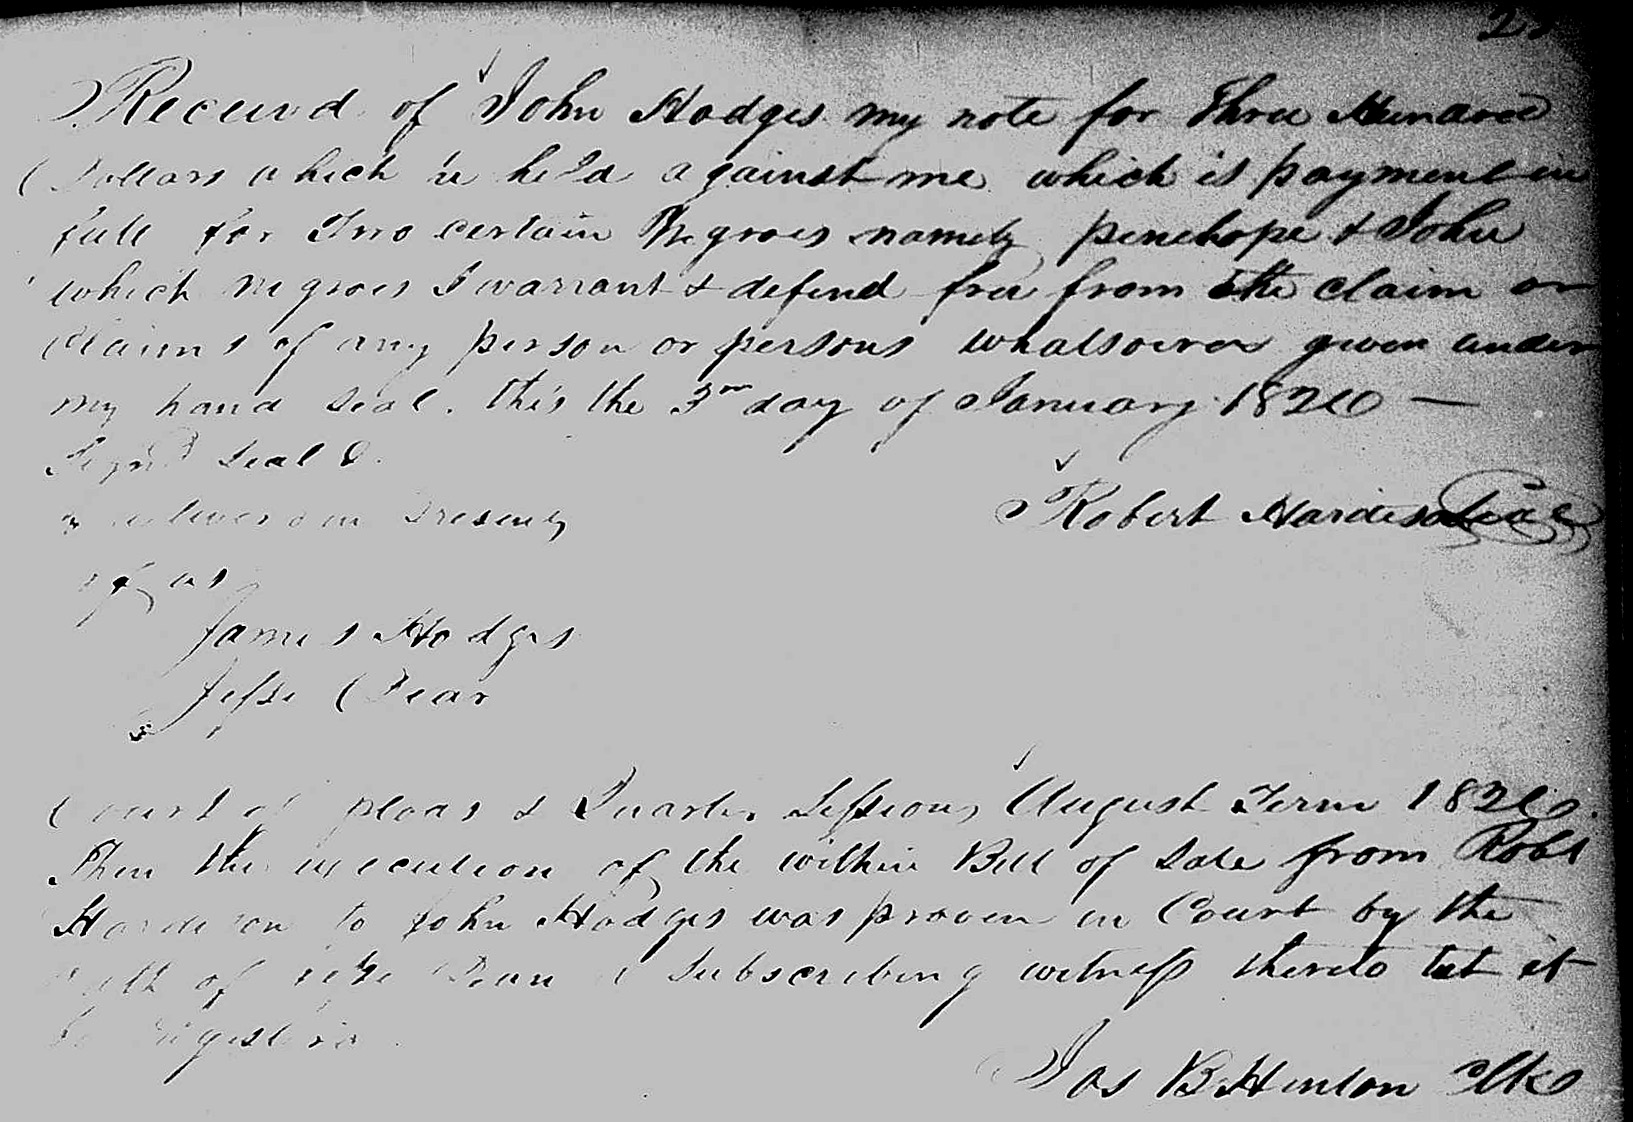 Received of John Hodges my note for Three Hundred
Dollars which he held against me which is payment in
full for Two certain Negroes namely penelope & John
which negroes I warrant & defend free from the claim or
claims of any person or persons whatsoever given under
my hand seal. this the 3rd day of January 1820 —
Signd Seald
& deliverd in Presents
of us
Robert Hardison Seal
James Hodges
Jesse
Court of pleas & Quarter Sessions August Term 1820
Then the execution of the within Bill of Sale from Robt
Hardison to John Hodges was proven in Court by the
oath of Jesse a Subscribing witness thereto let it
be Registerd.
Jos B Hinton Clk